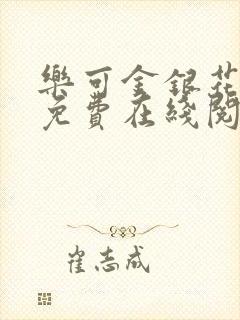 樂可金銀花
免費在綫閱
崔志成